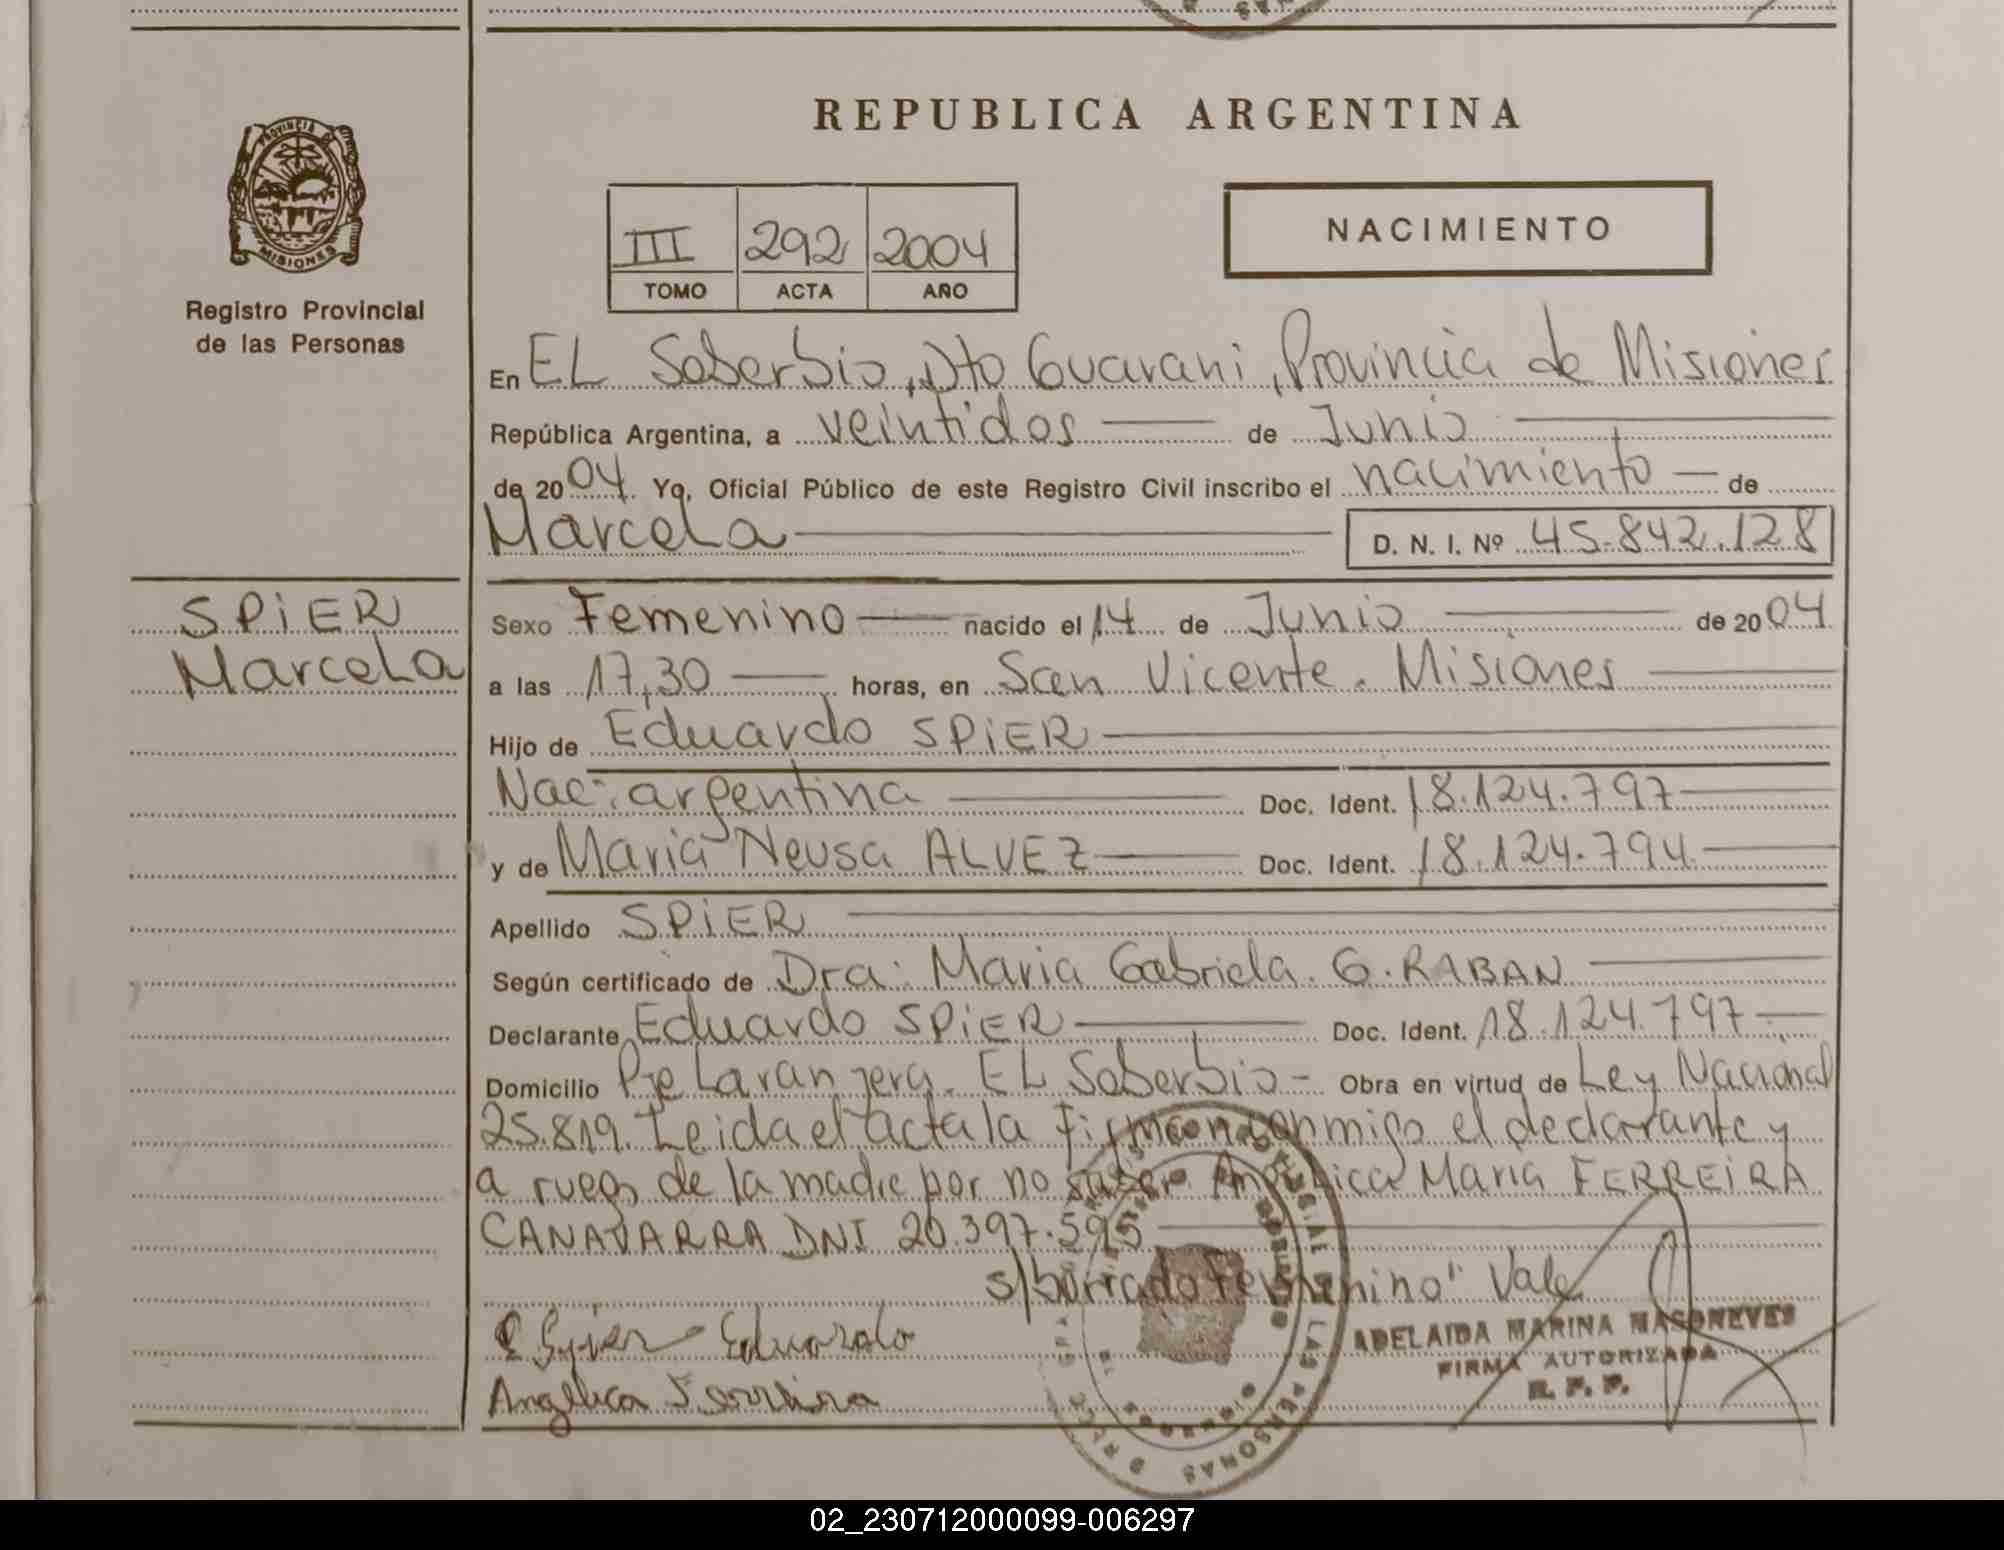 REPUBLICA ARGENTINA
PROVINCIA DE
MISIONES
Registro Provincial
de las Personas
III 292 2004
TOMO ACTA AÑO
NACIMIENTO
En EL Soberbio, Dto Guarani, Provincia de Misiones
República Argentina, a veintidos de Junio
de 2004. Yo, Oficial Público de este Registro Civil inscribo el nacimiento de
Marcela D. N. I. Nº 45.842.128
SPIER
Marcela
Sexo Femenino nacido el 14 de Junio de 2004
a las 17,30 horas, en San Vicente. Misiones
Hijo de Eduardo SPIER
Nac: argentina Doc. Ident. 18.124.797
y de Maria Neusa ALVEZ Doc. Ident. 18.124.794
Apellido SPIER
Según certificado de Dra: Maria Gabriela. G. RABAN
Declarante Eduardo SPIER Doc. Ident. 18.124.797
Domicilio Pje Laranjera. EL Soberbio - Obra en virtud de Ley Nacional
25.819. Leida el acta la firman conmigo el declarante y
a ruego de la madre por no saber Angelica Maria FERREIRA
CANAVARRA DNI 20.397.595
s/borrado "Femenino" Vale
Eduardo
Angelica Ferreira
ADELAIDA MARINA MASONEVES
FIRMA AUTORIZADA
R. P. P.
LAS PERSONAS
02_230712000099-006297